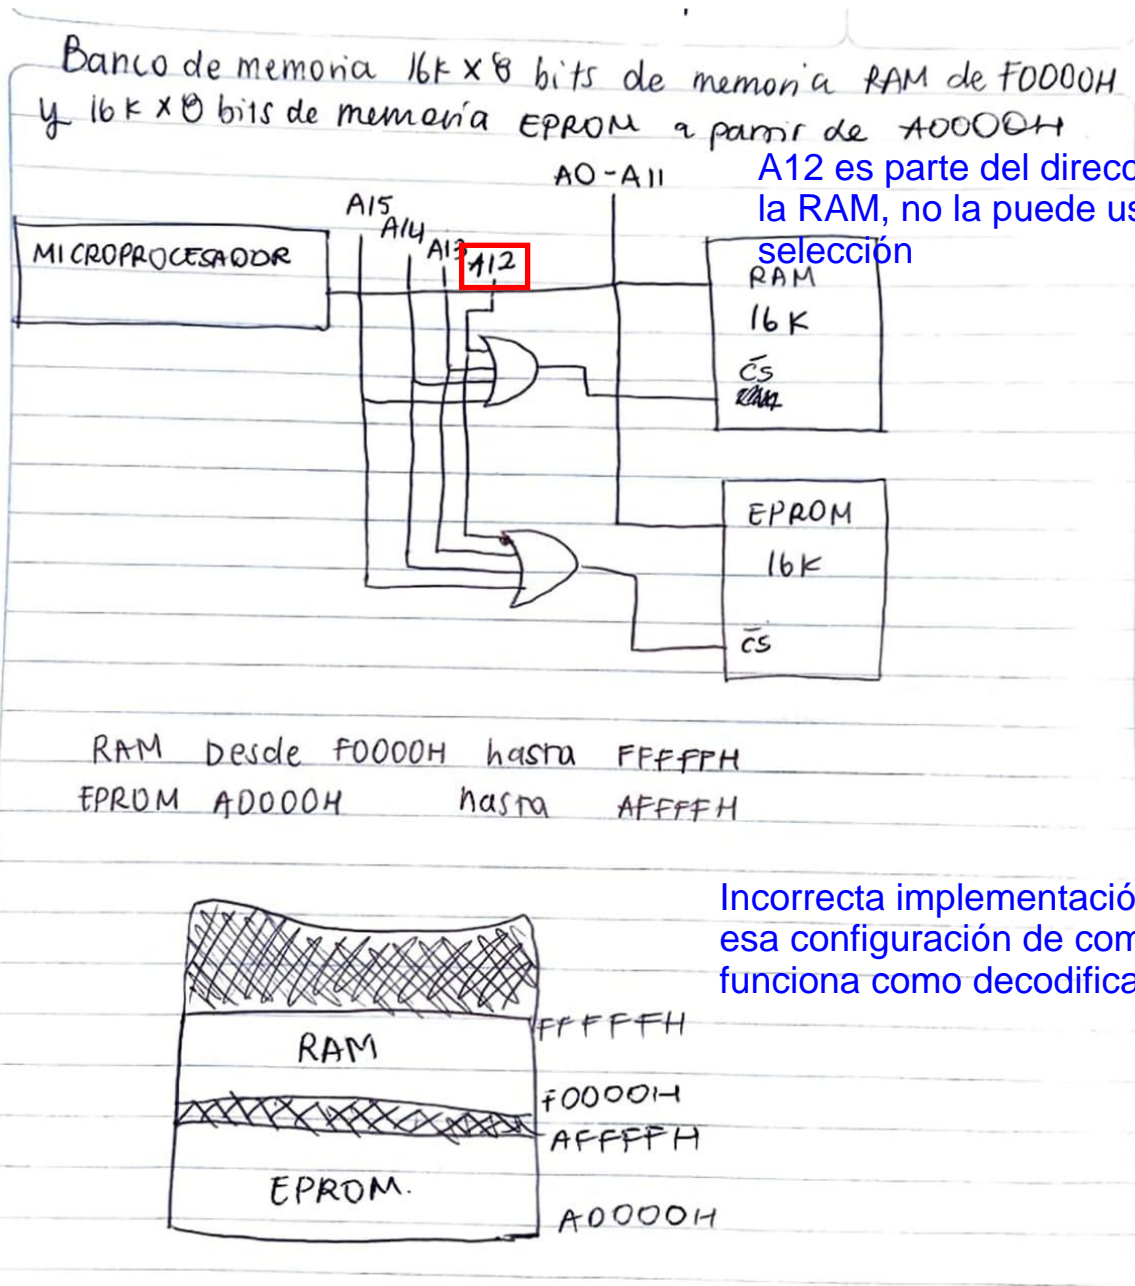 Banco de memoria 16K x 8 bits de memoria RAM de F0000H
y 16K x 8 bits de memoria EPROM a partir de A0000H
A0-A11
A12 es parte del direcc
la RAM, no la puede us
selección
A15
A14
A13
A12
MICROPROCESADOR
RAM
16K
CS
EPROM
16K
CS
RAM Desde F0000H hasta FFFFFH
EPROM A0000H hasta AFFFFH
Incorrecta implementació
esa configuración de com
funciona como decodifica
FFFFFH
RAM
F0000H
AFFFFH
EPROM.
A0000H